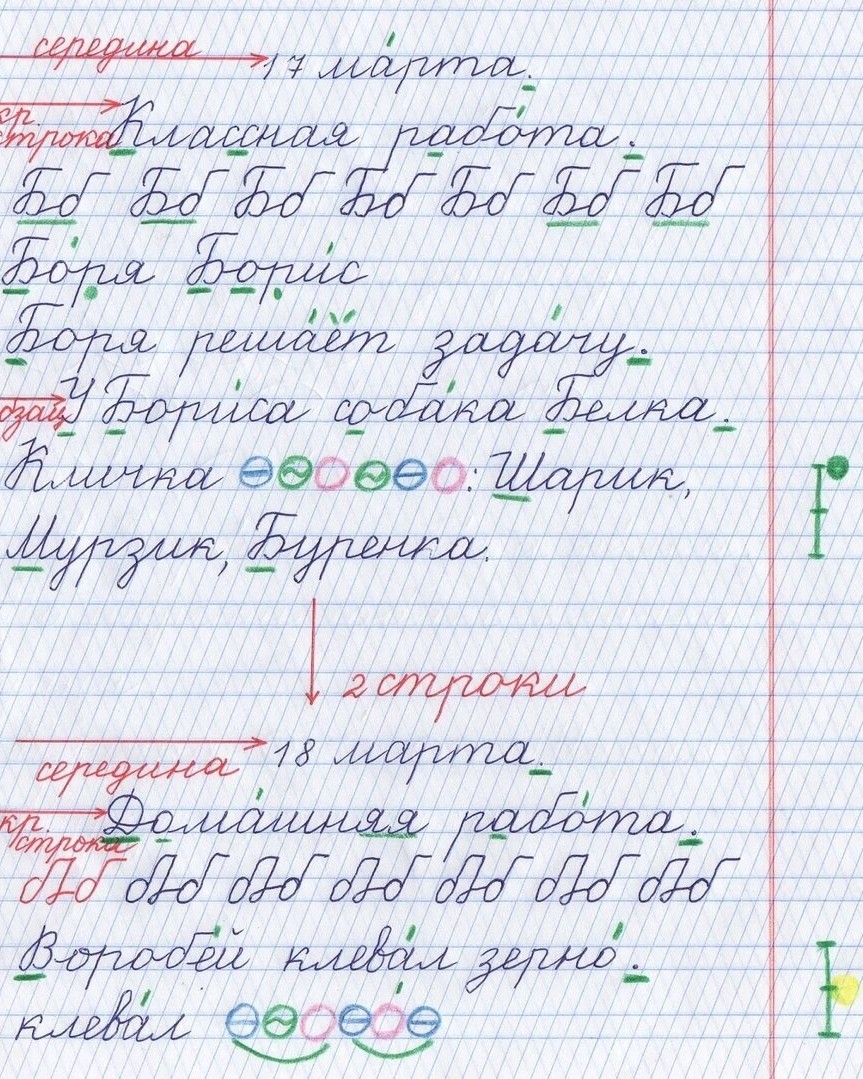 середина 17 марта.
кр. строка Классная работа.
Бб Бб Бб Бб Бб Бб Бб
Боря Борис
Боря решает задачу.
абзац У Бориса собака Белка.
Кличка : Шарик,
Мурзик, Буренка.
2 строки
середина 18 марта.
кр. строка Домашняя работа.
Воробей клевал зерно.
клевал